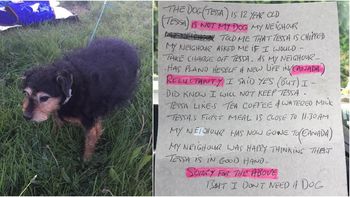 THE DOG (TESSA) IS 12 YEAR OLD
(TESSA) IS NOT MY DOG MY NEIGHOUR
TOLD ME THAT TESSA IS CHIPPED
MY NEIGHOUR ASKED ME IF I WOULD -
TAKE CHARGE OF TESSA. AS MY NEIGHOUR -
HAS HERSELF A NEW LIFE IN (CANADA)
RELUCTANTY I SAID YES (BUT) I
DID KNOW I WILL NOT KEEP TESSA -
TESSA LIKE'S TEA COFFEE & WATERED MILK
TESSA'S FIRST MEAL IS CLOSE TO 11:30AM
MY NEIGHOUR HAS NOW GOING TO (CANADA)
MY NEIGHOUR WAS HAPPY THINKING THAT
TESSA IS IN GOOD HAND.
SORRY FOR THE ABOVE
BUT I DON'T NEED A DOG